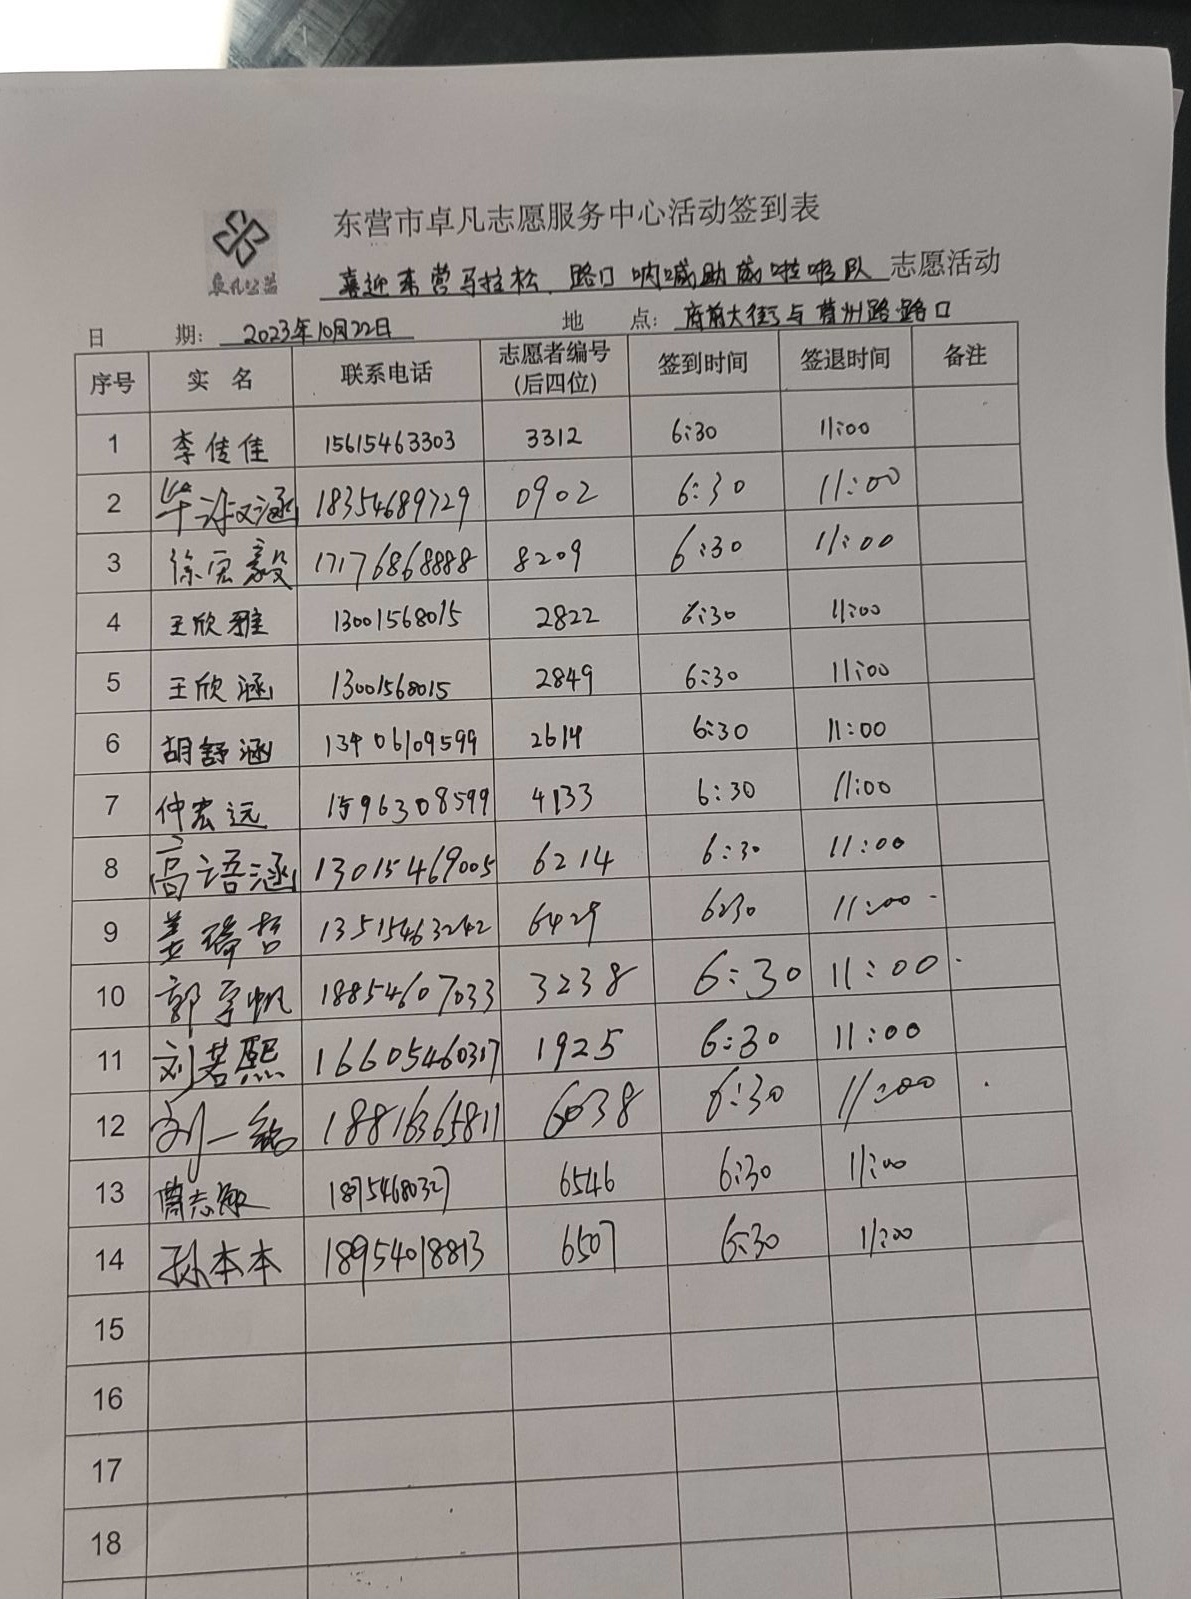 东营市卓凡志愿服务中心活动签到表
卓凡公益
喜迎东营马拉松、路口呐喊助威啦啦队 志愿活动
日 期: 2023年10月22日 地 点: 府前大街与曹州路路口
序号 实 名 联系电话 志愿者编号(后四位) 签到时间 签退时间 备注
1 李传佳 15615463303 3312 6:30 11:00
2 毕诗涵 18354689729 0902 6:30 11:00
3 徐宏毅 17176868888 8209 6:30 11:00
4 王欣雅 13001568015 2822 6:30 11:00
5 王欣涵 13001568015 2849 6:30 11:00
6 胡舒涵 13406109599 2614 6:30 11:00
7 仲宏远 1596308599 4133 6:30 11:00
8 高语涵 13015469005 6214 6:30 11:00
9 姜琦哲 13515463242 6429 6:30 11:00
10 郭宇帆 18854607033 3238 6:30 11:00
11 刘若熙 16605460317 1925 6:30 11:00
12 刘一铭 18816365811 6038 6:30 11:00
13 曹志敏 6546 6:30 11:00
14 孙本本 18954018813 6507 6:30 11:00
15
16
17
18